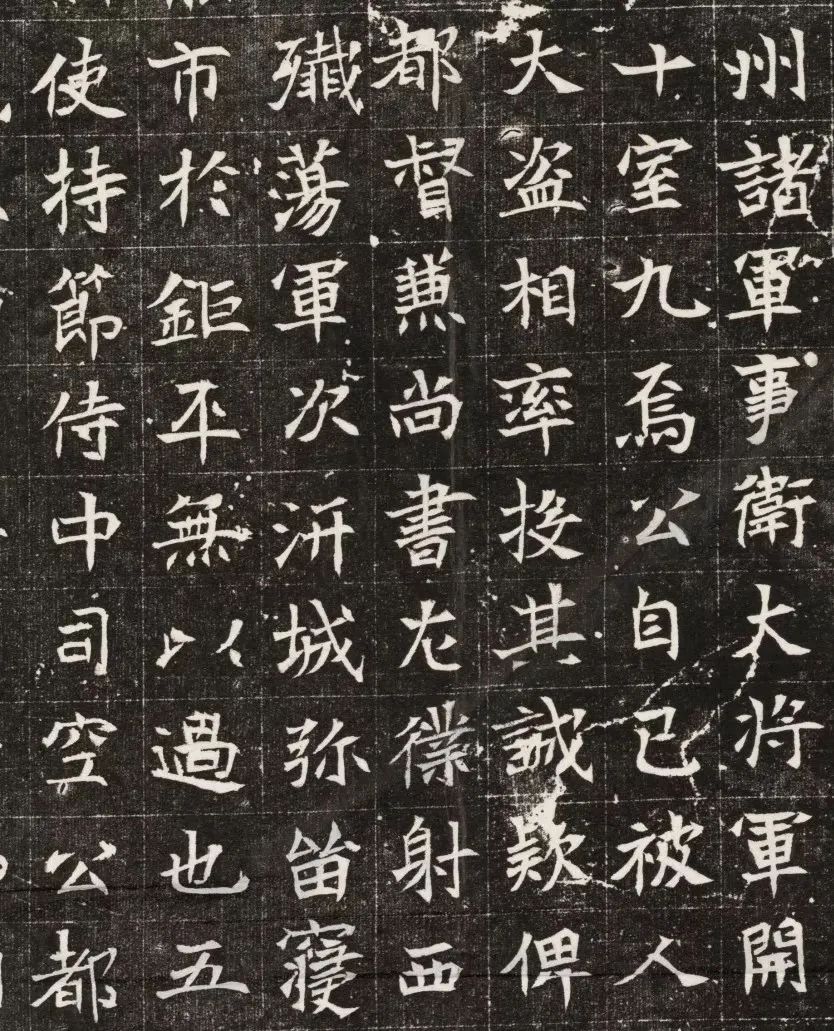 州諸軍事衛大將軍開
十室九焉公自己被人
大盜相率投其誠款俾
都督兼尚書左僕射西
殲蕩軍次汧城弥留寢
市於鉅平無以過也五
使持節侍中司空公都